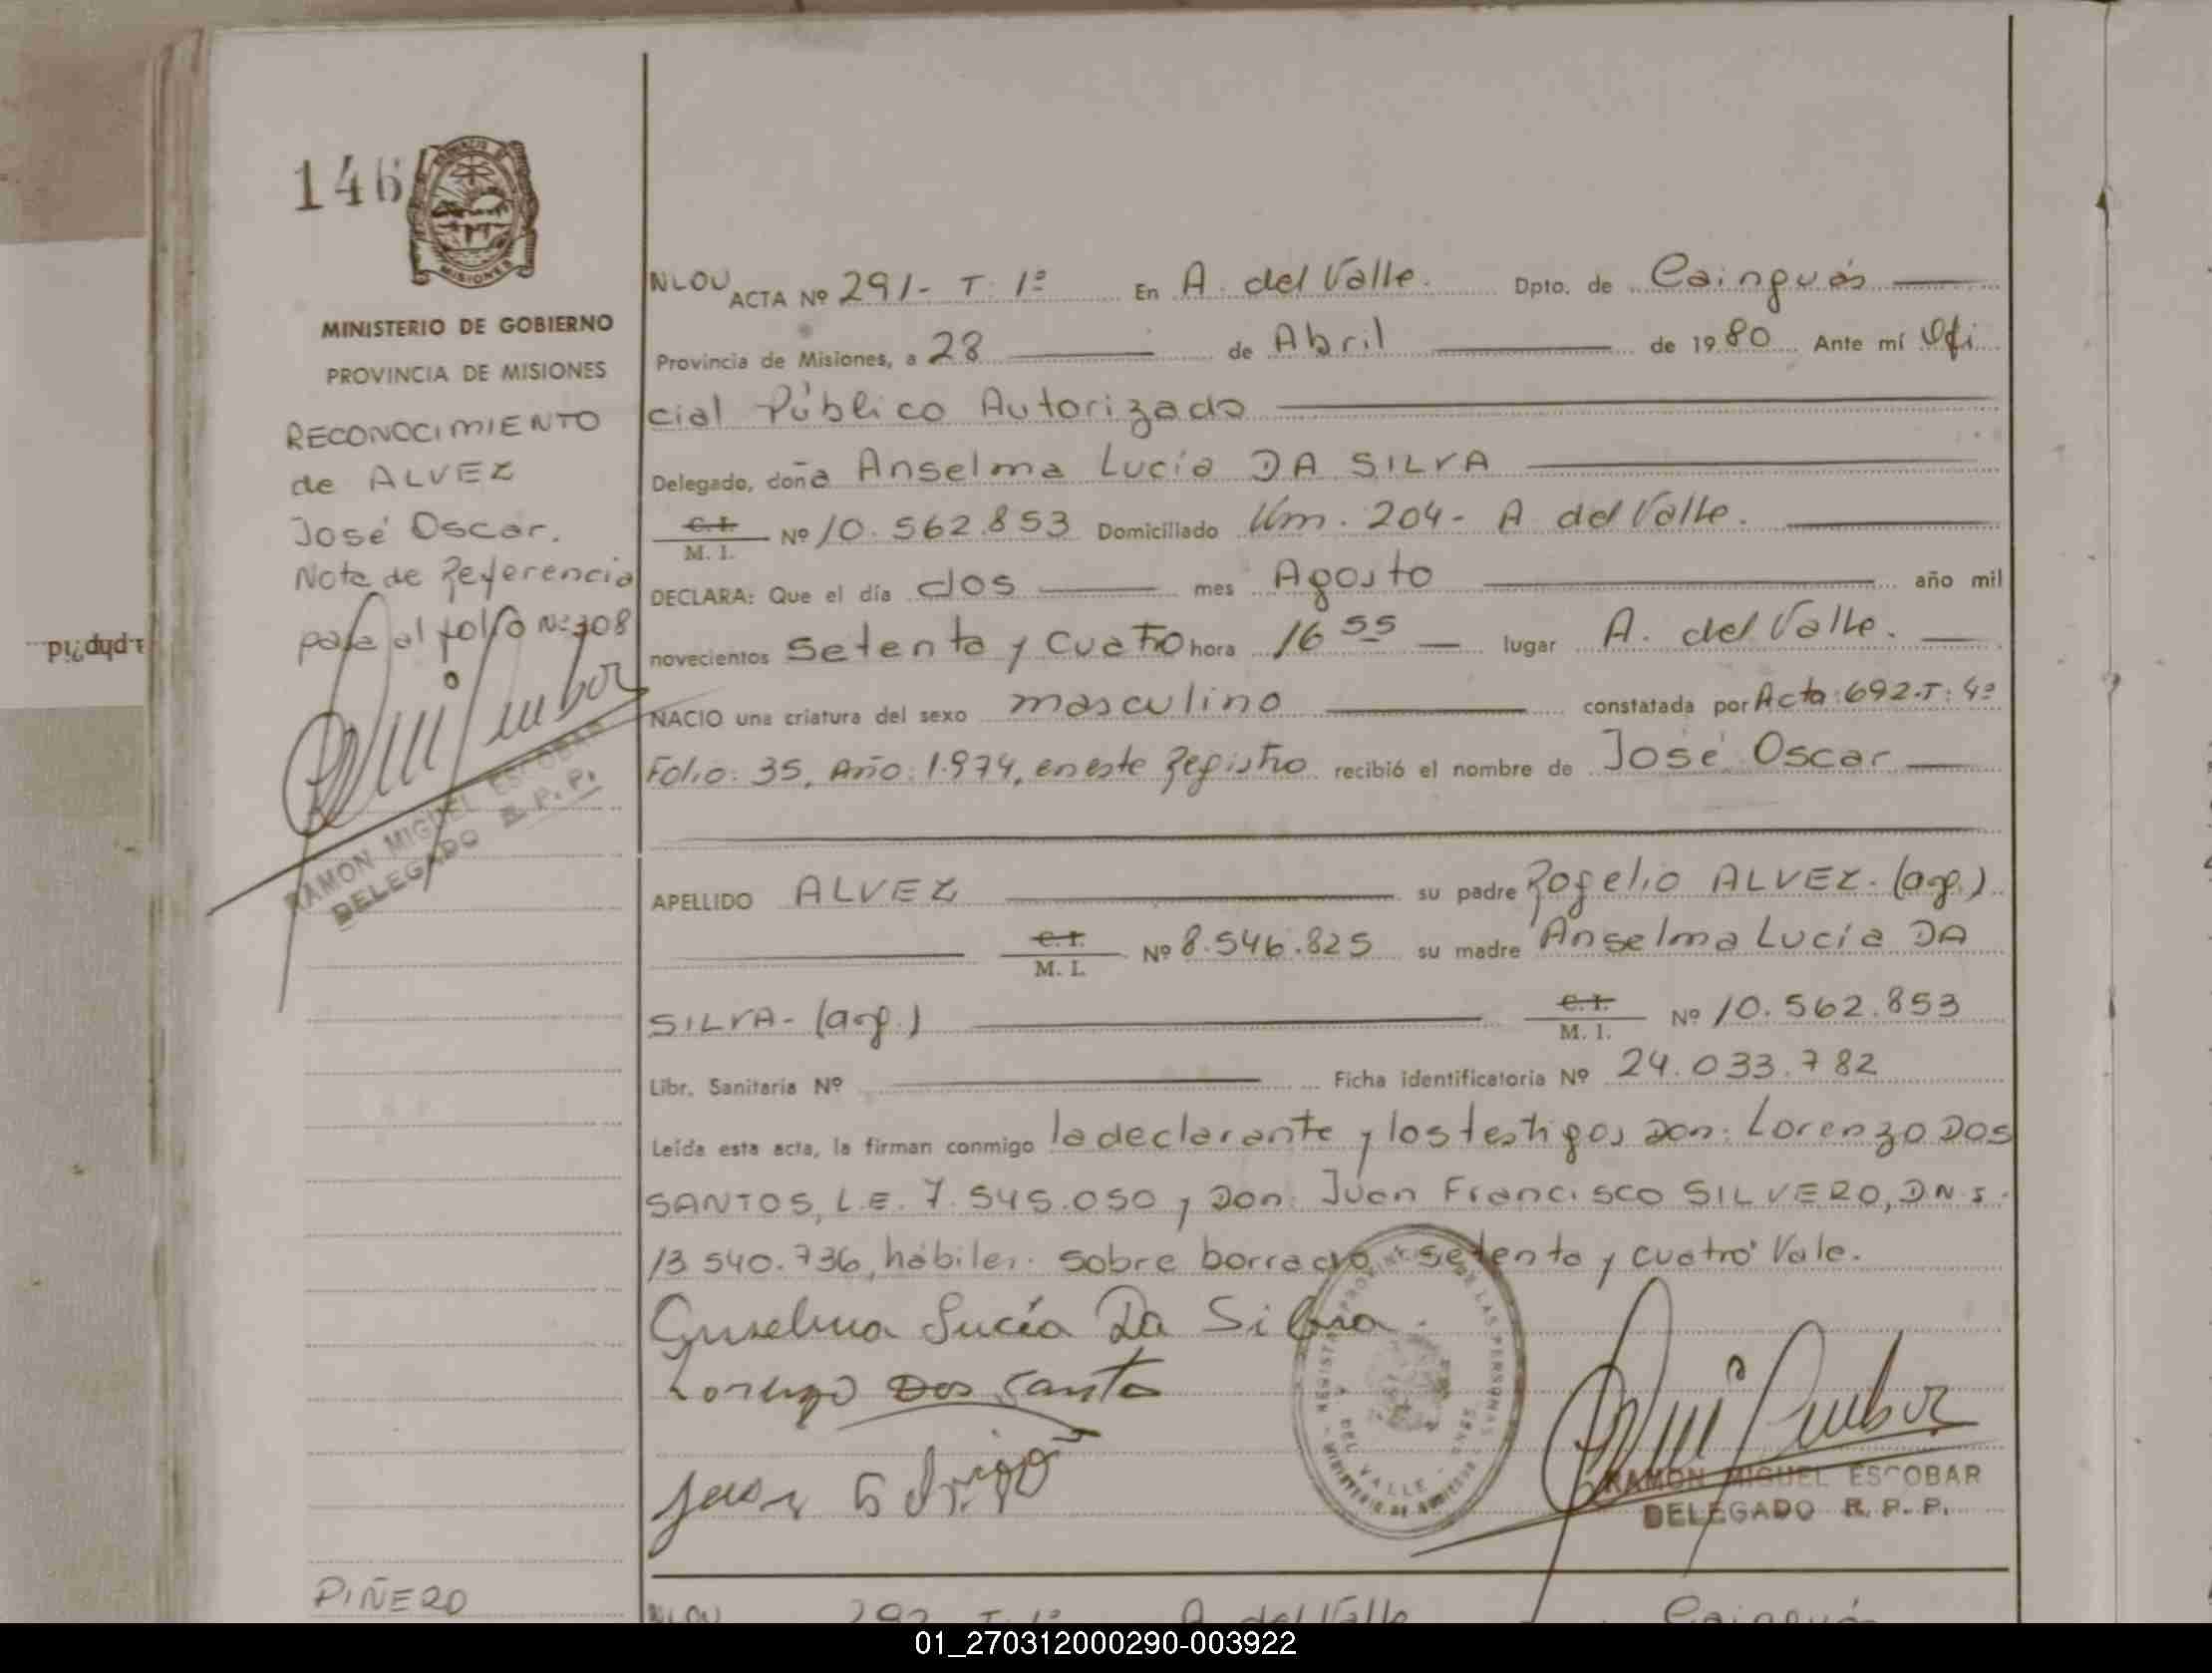 146
MISIONES
MINISTERIO DE GOBIERNO
PROVINCIA DE MISIONES
RECONOCIMIENTO
de ALVEZ
José Oscar.
Nota de Referencia
pasa al folio Nº 108
RAMON MIGUEL ESCOBAR
DELEGADO R. P. P.
PIÑERO
NLOU ACTA Nº 291- T. 1º En A. del Valle. Dpto. de Cainguás
Provincia de Misiones, a 28 de Abril de 1980 Ante mí Ofi
cial Público Autorizado
Delegado, doña Anselma Lucía DA SILVA
C. I.
M. I. Nº 10.562.853 Domiciliado Km. 204- A del Valle.
DECLARA: Que el día dos mes Agosto año mil
novecientos setenta y cuatro hora 16 55 lugar A. del Valle.
NACIO una criatura del sexo masculino constatada por Acta: 692.T: 4º
Folio: 35, Año: 1.974, en este Registro recibió el nombre de José Oscar
APELLIDO ALVEZ su padre Rogelio ALVEZ. (arg.)
C. I.
M. I. Nº 8.546.825 su madre Anselma Lucía DA
SILVA- (arg.) C. I.
M. I. Nº 10.562.853
Libr. Sanitaria Nº Ficha identificatoria Nº 24.033.782
Leída esta acta, la firman conmigo la declarante y los testigos Don: Lorenzo DOS
SANTOS, L.E. 7.545.050 y Don: Juan Francisco SILVERO, D.N.I.
13 540.736, hábiles. Sobre borrado: setenta y cuatro Vale.
Anselma Lucía Da Silva
Lorenzo Dos Santo
DEL VALLE
RAMON MIGUEL ESCOBAR
DELEGADO R. P. P.
NLOU 292 T. 1º A del Valle Cainguás
01_270312000290-003922